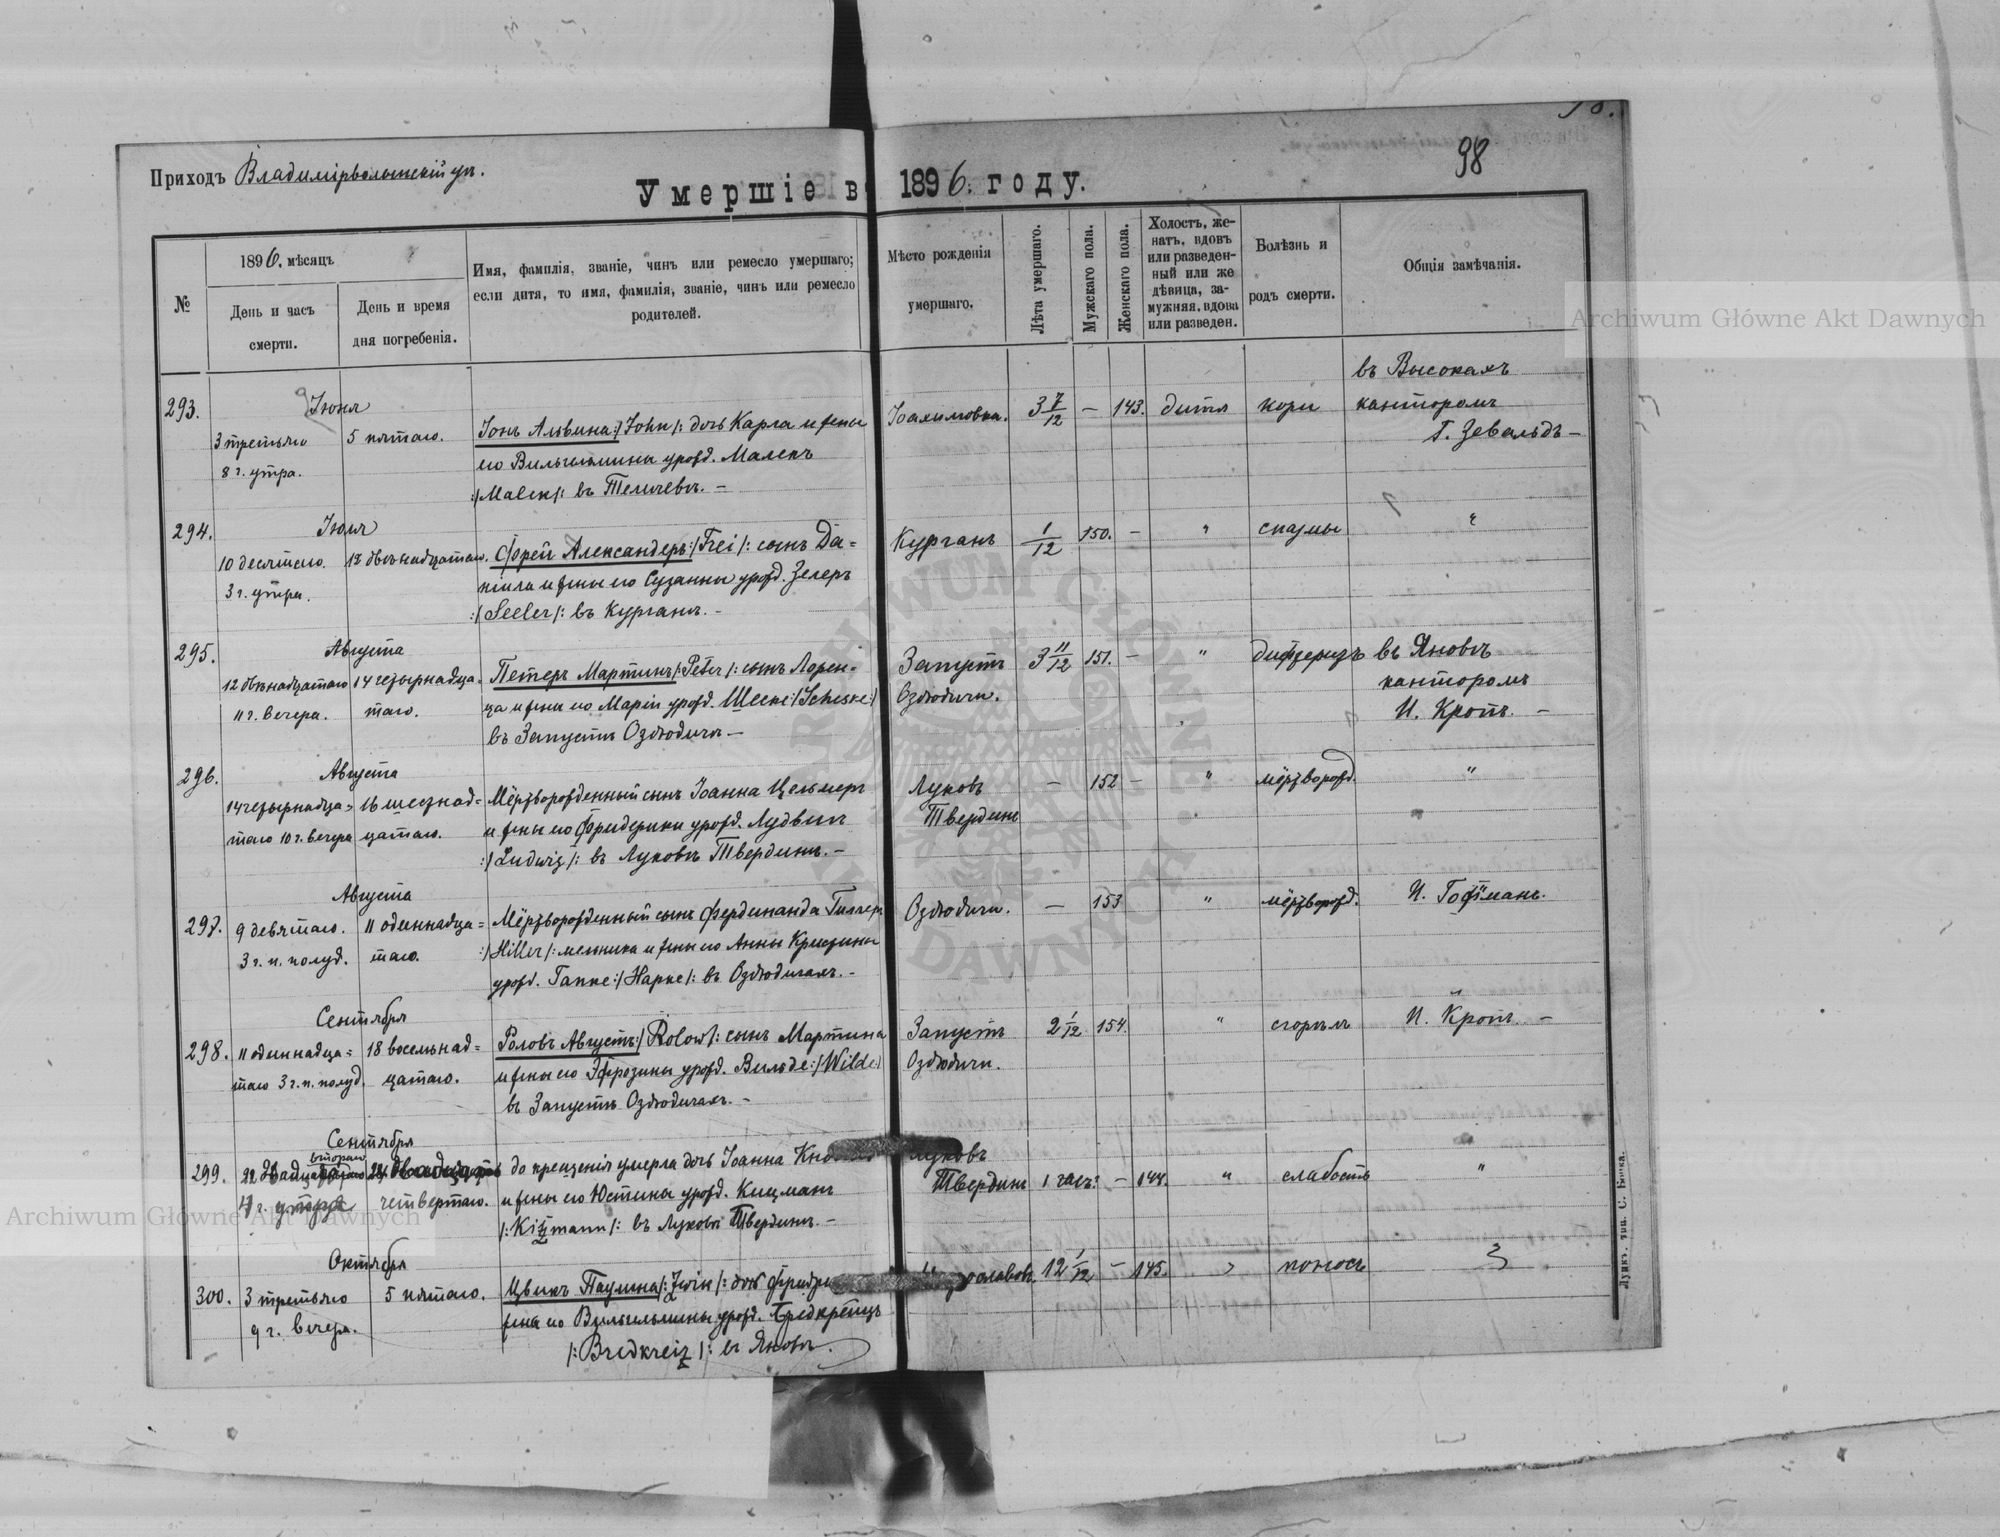 98
Приходъ Владимірволынскій уѣ.
Умершіе въ 1896. году.
№
1896. мѣсяцъ
День и часъ смерти.
День и время дня погребенія.
Имя, фамилія, званіе, чинъ или ремесло умершаго;
если дитя, то имя, фамилія, званіе, чинъ или ремесло
родителей.
Мѣсто рожденія
умершаго.
Лѣта умершаго.
Мужскаго пола.
Женскаго пола.
Холостъ, же-
натъ, вдовъ
или разведен-
ный или же
дѣвица, за-
мужняя, вдова
или разведен.
Болѣзнь и
родъ смерти.
Общія замѣчанія.
293.
Іюня
3 третьяго
8 г. утра.
5 пятаго.
Іонъ Альвина :/John/: дочь Карла и жены
его Вильгельмины урожд. Малекъ
:/Malek/: въ Темчевѣ. –
Іоахимовка.
3 7/12
–
143.
дитя
кори
въ Высокахъ
канторомъ
Г. Зевальдъ –
294.
Іюля
10 десятаго.
3 г. утра.
12 двѣнадцатаго.
Фрей Александеръ :/Frei/: сынъ Да=
ніила и жены его Сузанны урожд. Зелеръ
:/Seeler/: въ Курганѣ. –
Курганъ
1/12
150.
–
"
спазмы
"
295.
Августа
12 двѣнадцатаго
11 г. вечера.
14 четырнадца=
таго.
Петеръ Мартинъ :/Peter/: сынъ Лорен=
ца и жены его Маріи урожд. Шеске :/Scheske:/
въ Запустѣ Оздютичи –
Запустъ
Оздютичи.
3 11/12
151.
–
"
дифтеритъ
въ Яновѣ
канторомъ
И. Кропъ. –
296.
Августа
14 четырнадца=
таго 10 г. вечера
16 шестнад=
цатаго.
Мёртворожденный сынъ Іоанна Цельмеръ
и жены его Фридерики урожд. Лудвигъ
:/Ludwig/: въ Луковѣ Твердинь. –
Луковъ
Твердинь
–
152
–
"
мёртворожд.
"
297.
Августа
9 девятаго.
3 г. п. полуд.
11 одиннадца=
таго.
Мёртворожденный сынъ Фердинанда Гиллеръ
:/Hiller/: мельника и жены его Анны Кристины
урожд. Гапке :/Hapke/: въ Оздютичахъ. –
Оздютичи.
–
153
"
мёртворожд.
И. Гофманъ.
298.
Сентября
11 одиннадца=
таго 3 г. п. полуд.
18 восемьнад=
цатаго.
Роловъ Августъ :/Rolow/: сынъ Мартина
и жены его Эфрозины урожд. Вильде :/Wilde/
въ Запустъ Оздютичахъ. –
Запустъ
Оздютичи.
2 1/12
154.
"
сгорѣлъ
И. Кропъ. –
299.
Сентября
втораго
22
г.
24
четвертаго.
до крещенія умерла дочь Іоанна
и жены его Юстины урожд. Кицманъ
/:Kitzmann/: въ Луковѣ Твердинь. –
Луковъ
Твердинь
1 часъ.
–
144.
"
слабость
"
300.
Октября
3 третьяго
9 г. вечера.
5 пятаго.
Цвикъ Паулина /:Zwik/: дочь
жена его Вильгельмины урожд. Бредкрейцъ
/:Bredkreiz/: въ Яновѣ.
12 1/12
–
145.
поносъ
Луцкъ. тип. С. Бонка.
Archiwum Główne Akt Dawnych
Archiwum Główne Akt Dawnych
ARCHIWUM GŁÓWNE AKT DAWNYCH